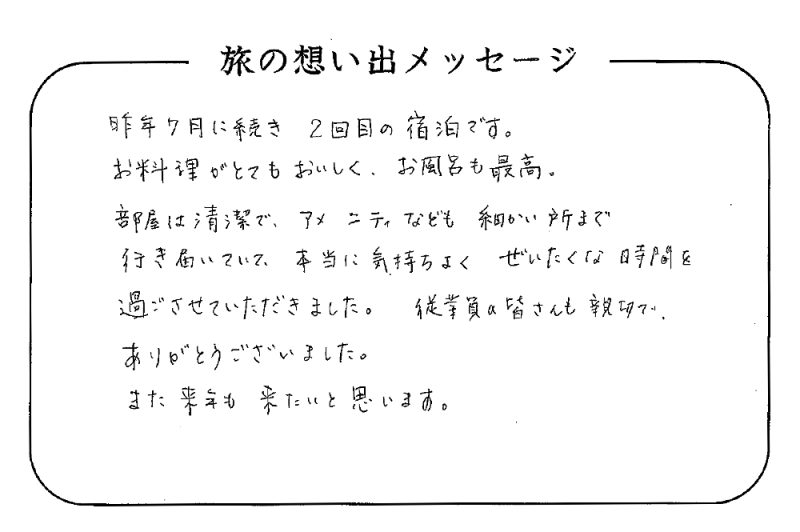 旅の想い出メッセージ
昨年7月に続き 2回目の宿泊です。
お料理がとてもおいしく、お風呂も最高。
部屋は清潔で、アメニティなども細かい所まで
行き届いていて、本当に気持ちよく ぜいたくな時間を
過ごさせていただきました。 従業員の皆さんも親切で、
ありがとうございました。
また来年も 来たいと思います。